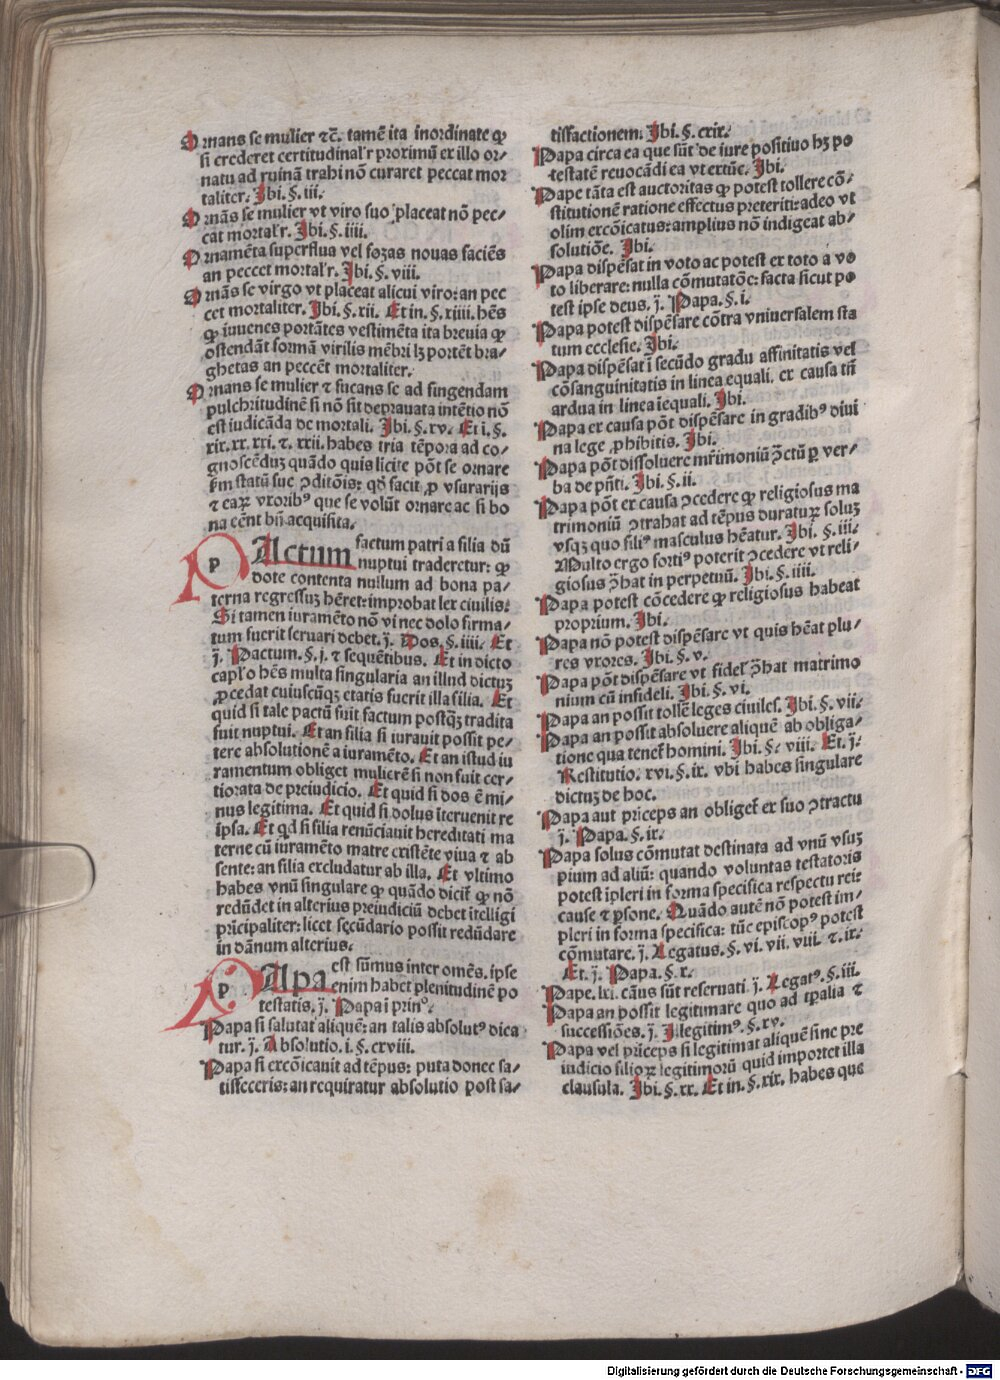 Ornans se mulier ⁊cͨ. tamē ita inordinate ꝙ
si crederet certitudinalr̄ proximū ex illo or⸗
natu ad ruinā trahi nō curaret peccat mor
taliter. Ibi. §. iii.
Ornās se mulier vt viro suo placeat nō pec⸗
cat mortalr̄. Ibi. §. iiii.
Ornamēta superflua vel fozas nouas faciēs
an peccet mortalr̄. Ibi. §. viii.
Ornās se virgo vt placeat alicui viro: an pec
cet mortaliter. Ibi. §. xii. Et in. §. xiiii. hēs
ꝙ iuuenes portātes vestimēta ita breuia ꝙ
ostendāt formā virilis mēbri lꝫ portēt bra⸗
ghetas an peccēt mortaliter.
Ornans se mulier ⁊ fucans se ad fingendam
pulchritudinē si nō sit deprauata intētio nō
est iudicāda de mortali. Ibi. §. xv. Et i. §.
xix. xx. xxi. ⁊. xxii. habes tria tēpora ad co⸗
gnoscēduꝫ quādo quis licite pōt se ornare
ẜm statū sue ꝯditōis: qd̄ facit ꝓ vsurarijs
⁊ eaꝝ vxoribꝰ que se volūt ornare ac si bo
na eēnt bn̄ acquisita.
P
PActum factum patri a filia dū
nuptui traderetur: ꝙ
dote contenta nullum ad bona pa⸗
terna regressuꝫ hēret: improbat lex ciuilis:
Si tamen iuramēto nō vi nec dolo firma⸗
tum fuerit seruari debet. j̄. Dos. §. iiii. Et
j̄. Pactum. §. j. ⁊ sequētibus. Et in dicto
caplo hēs multa singularia an illud dictuꝫ
ꝓcedat cuiuscūqꝫ etatis fuerit illa filia. Et
quid si tale pactū fuit factum postꝗꝫ tradita
fuit nuptui. Et an filia si iurauit possit pe⸗
tere absolutionē a iuramēto. Et an istud iu
ramentum obliget mulierē si non fuit cer⸗
tiorata de preiudicio. Et quid si dos ē mi⸗
nus legitima. Et quid si dolus īteruenit re
ipsa. Et qd̄ si filia renūciauit hereditati ma
terne cū iuramēto matre existēte viua ⁊ ab
sente: an filia excludatur ab illa. Et vltimo
habes vnū singulare ꝙ quādo dicit̄ ꝙ nō
redūdet in alterius preiudiciū debet ītelligi
prīcipaliter: licet secūdario possit redūdare
in dānum alterius.
P
PApa est sūmus inter omēs. ipse
enim habet plenitudinē po
testatis. j̄. Papa ī prinº.
Papa si salutat aliquē: an talis absolutꝰ dica
tur. j̄. Absolutio. i. §. cxviii.
Papa si excōicauit ad tēpus: puta donec sa⸗
tisfeceris: an requiratur absolutio post sa⸗
tisfactionem. Ibi. §. cxix.
Papa circa ea que sūt de iure positiuo hꝫ po
testatē reuocādi ea vt extūc. Ibi.
Pape tāta est auctoritas ꝙ potest tollere cō⸗
stitutionē ratione effectus preteriti: adeo vt
olim excōicatus: amplius nō indigeat ab⸗
solutiōe. Ibi.
Papa dispēsat in voto ac potest ex toto a vo
to liberare: nulla cōmutatōe: facta sicut po
test ipse deus. j̄. Papa. §. i.
Papa potest dispēsare cōtra vniuersalem sta
tum ecclesie. Ibi.
Papa dispēsat ī secūdo gradu affinitatis vel
cōsanguinitatis in linea equali. ex causa tn̄
ardua in linea īequali. Ibi.
Papa ex causa pōt dispēsare in gradibꝰ diui
na lege ꝓhibitis. Ibi.
Papa pōt dissoluere mr̄imoniū ꝯtctū ꝑ ver⸗
ba de pn̄ti. Ibi. §. ii.
Papa pōt ex causa ꝯcedere ꝙ religiosus ma
trimoniū ꝯtrahat ad tēpus duraturꝝ soluꝫ
vsqꝫ quo filiꝰ masculus hēatur. Ibi. §. iii.
Multo ergo fortiꝰ poterit ꝯcedere vt reli⸗
giosus ꝯhat in perpetuū. Ibi. §. iiii.
Papa potest cōcedere ꝙ religiosus habeat
proprium. Ibi.
Papa nō potest dispēsare vt quis hēat plu⸗
res vxores. Ibi. §. v.
Papa pōt dispēsare vt fidel̄ ꝯhat matrimo
nium cū infideli. Ibi. §. vi.
Papa an possit tollē leges ciuiles. Ibi. §. vii.
Papa an possit absoluere aliquē ab obliga⸗
tione qua tenet̄ homini. Ibi. §. viii. Et. j̄.
Restitutio. xvi. §. ix. vbi habes singulare
dictuꝫ de hoc.
Papa aut prīceps an obliget̄ ex suo ꝯtractu
j̄. Papa. §. ix.
Papa solus cōmutat destinata ad vnū vsuꝫ
pium ad aliū: quando voluntas testatoris
potest īpleri in forma specifica respectu rei:
cause ⁊ ꝑsone. Quādo autē nō potest im⸗
pleri in forma specifica: tūc episcopꝰ potest
cōmutare. j̄. Legatus. §. vi. vii. viii. ⁊. ix.
Et. j̄. Papa. §. x.
Pape. lxi. cāus sūt reseruati. j̄. Legatꝰ. §. iii.
Papa an possit legitimare quo ad tp̄alia ⁊
successiōes. j̄. Illegitimꝰ. §. xv.
Papa vel prīceps si legitimat aliquē sine pre
iudicio filioꝝ legitimorū quid importet illa
clausula. Ibi. §. xx. Et in. §. xix. habes que
Digitalisierung gefördert durch die Deutsche Forschungsgemeinschaft - DFG